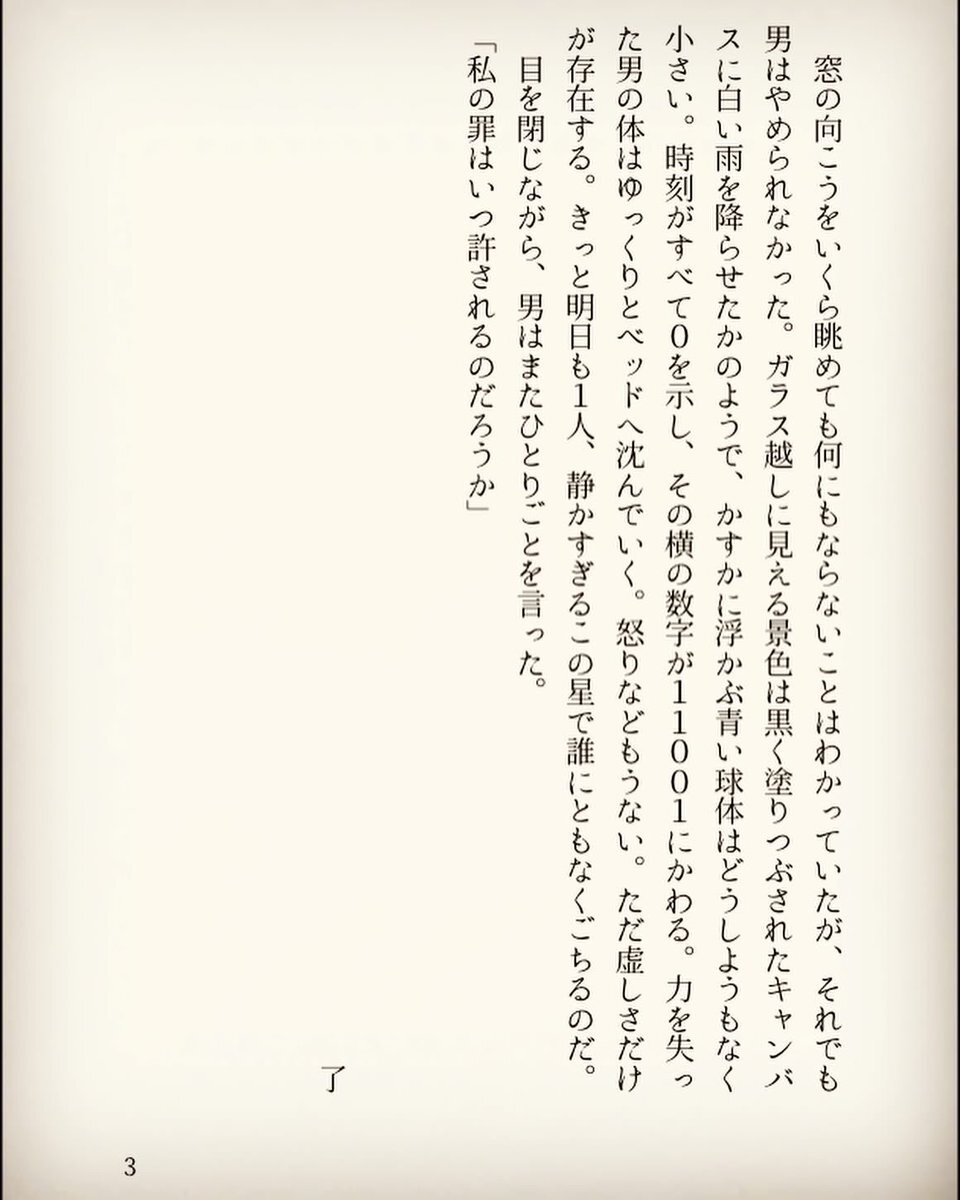 窓の向こうをいくら眺めても何にもならないことはわかっていたが、それでも
男はやめられなかった。ガラス越しに見える景色は黒く塗りつぶされたキャンバ
スに白い雨を降らせたかのようで、かすかに浮かぶ青い球体はどうしようもなく
小さい。時刻がすべて０を示し、その横の数字が１１００１にかわる。力を失っ
た男の体はゆっくりとベッドへ沈んでいく。怒りなどもうない。ただ虚しさだけ
が存在する。きっと明日も１人、静かすぎるこの星で誰にともなくごちるのだ。
目を閉じながら、男はまたひとりごとを言った。
「私の罪はいつ許されるのだろうか」
了
3